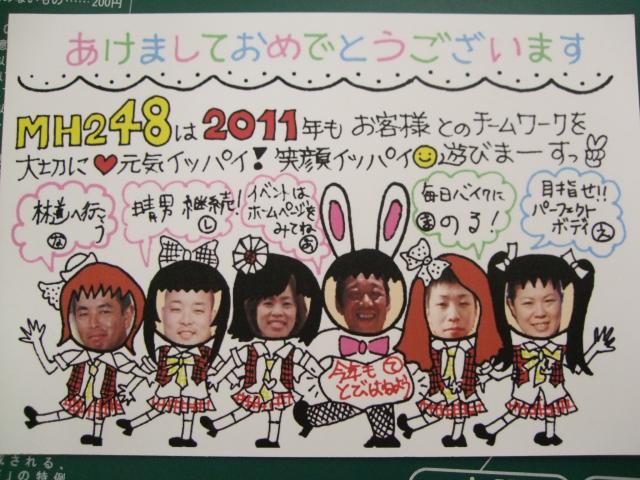 のないもの……200円
あけましておめでとうございます
MH248は2011年も お客様とのチームワークを
大切に♥元気イッパイ!笑顔イッパイ遊びまーすっ
林道へ行こう
な
晴男 継続!
し
イベントは
ホームページを
みてね
お
毎日バイクに
のる!
目指せ!!
パーフェクト
ボディ
今年も
て
とびはねよう
される、
の特例